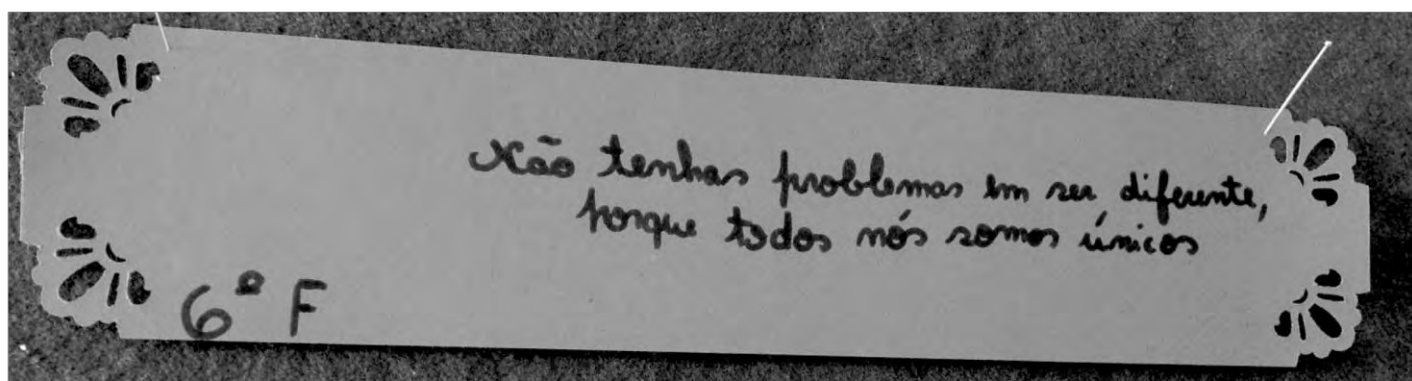 Não tenhas problemas em ser diferente,
porque todos nós somos únicos
6º F